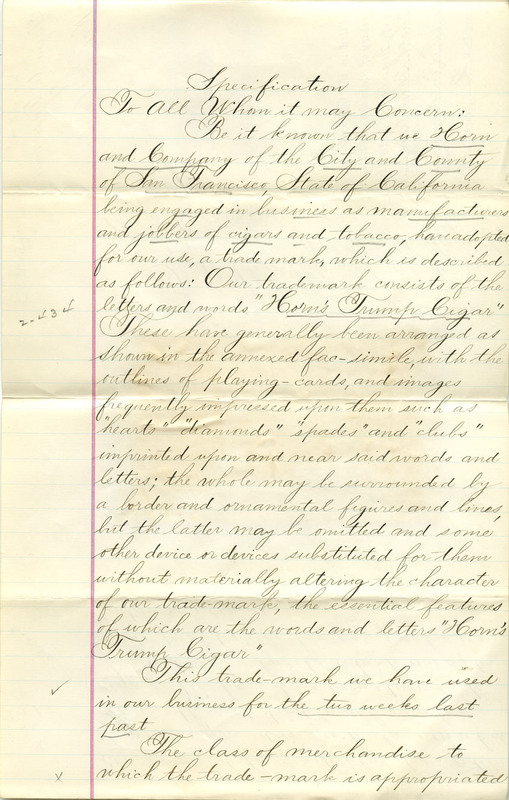 Specification
To All Whom it may Concern:
Be it known that we Horn
and Company of the City and County
of San Francisco, State of California
being engaged in business as manufacturers
and jobbers of cigars and tobacco, have adopted
for our use, a trade mark, which is described
as follows: Our trademark consists of the
letters and words "Horn's Trump Cigar"
2434
These have generally been arranged as
shown in the annexed fac-simile, with the
outlines of playing-cards, and images
frequently impressed upon them such as
"hearts" "diamonds" "spades" and "clubs"
imprinted upon and near said words and
letters; the whole may be surrounded by
a border and ornamental figures and lines,
but the latter may be omitted and some
other device or devices substituted for them
without materially altering the character
of our trade-mark, the essential features
of which are the words and letters "Horn's
Trump Cigar"
This trade-mark we have used
in our business for the two weeks last
past
The class of merchandise to
which the trade-mark is appropriated